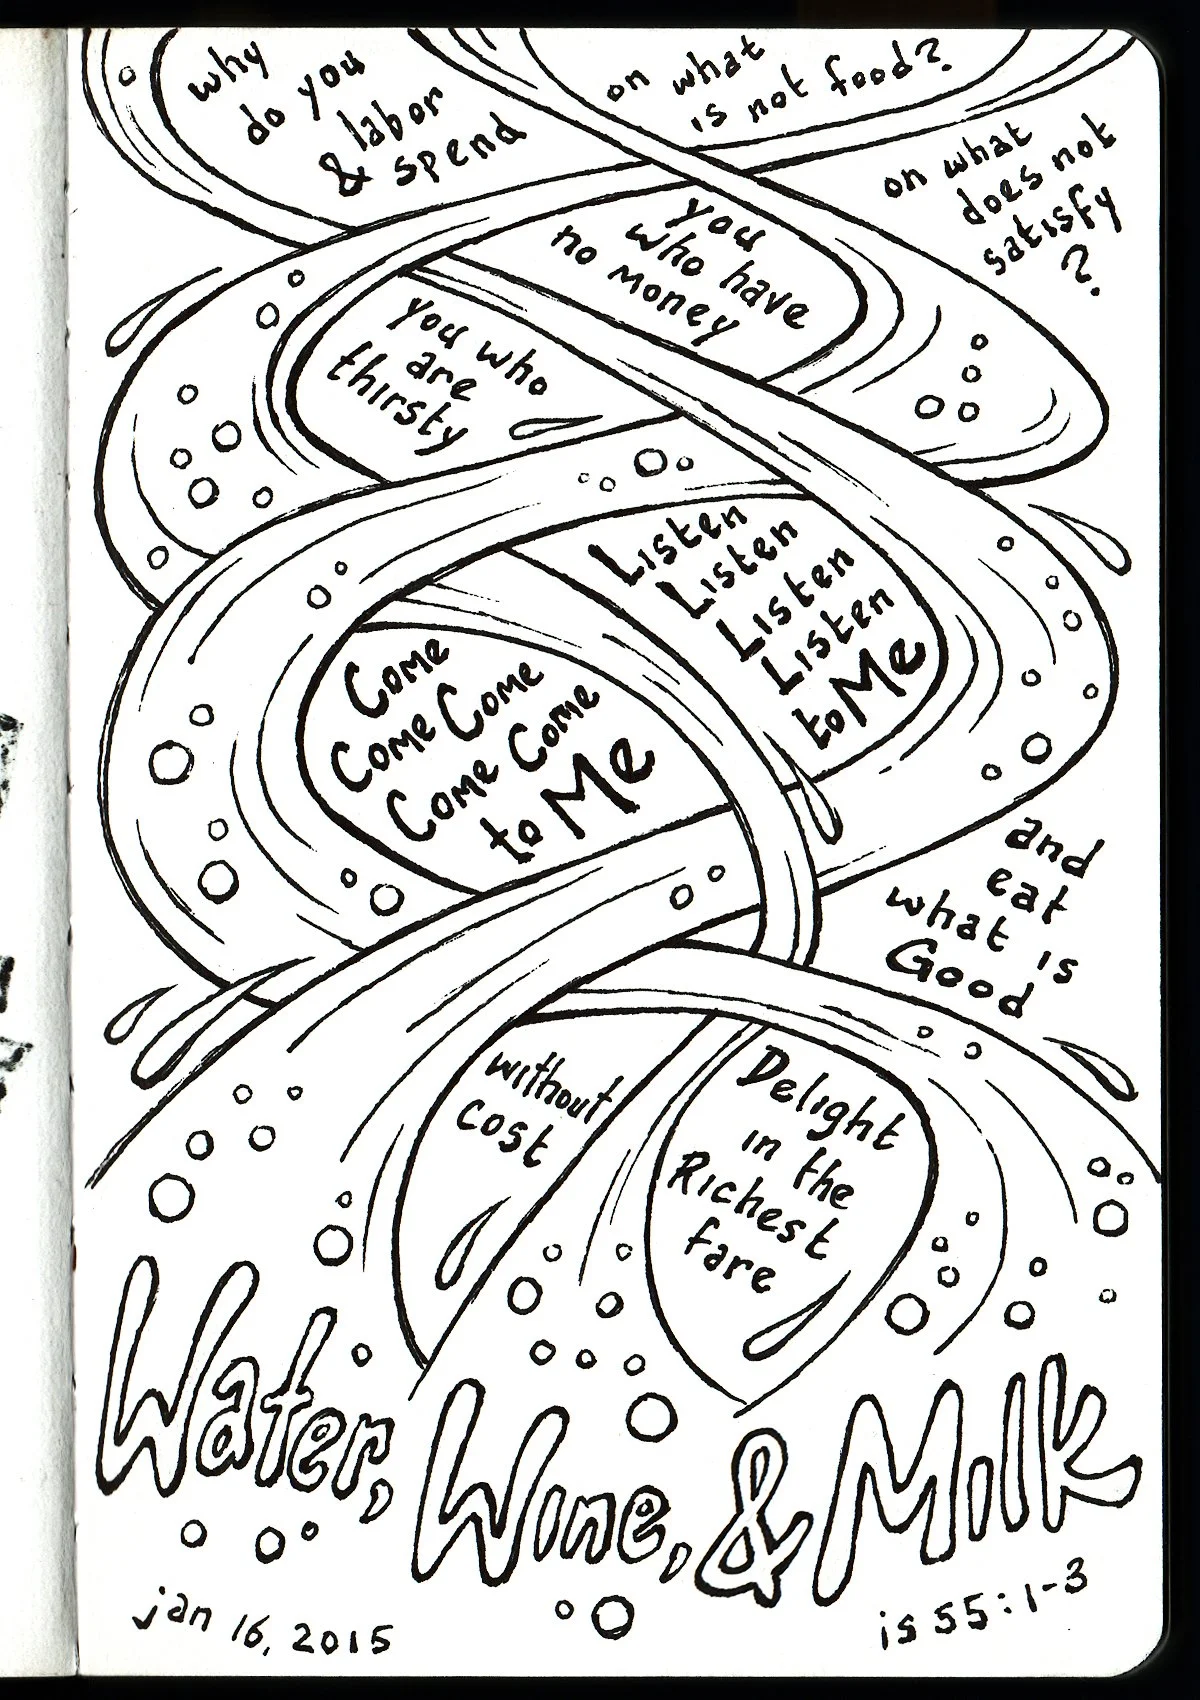 why
do you
labor
& spend
on what
is not food?
on what
does not
satisfy
?
you
who have
no money
you who
are
thirsty
Listen
Listen
Listen
Listen
to Me
Come
Come Come
Come Come
to Me
and
eat
what is
Good
without
cost
Delight
in the
Richest
fare
Water, Wine, & Milk
jan 16, 2015
is 55:1-3